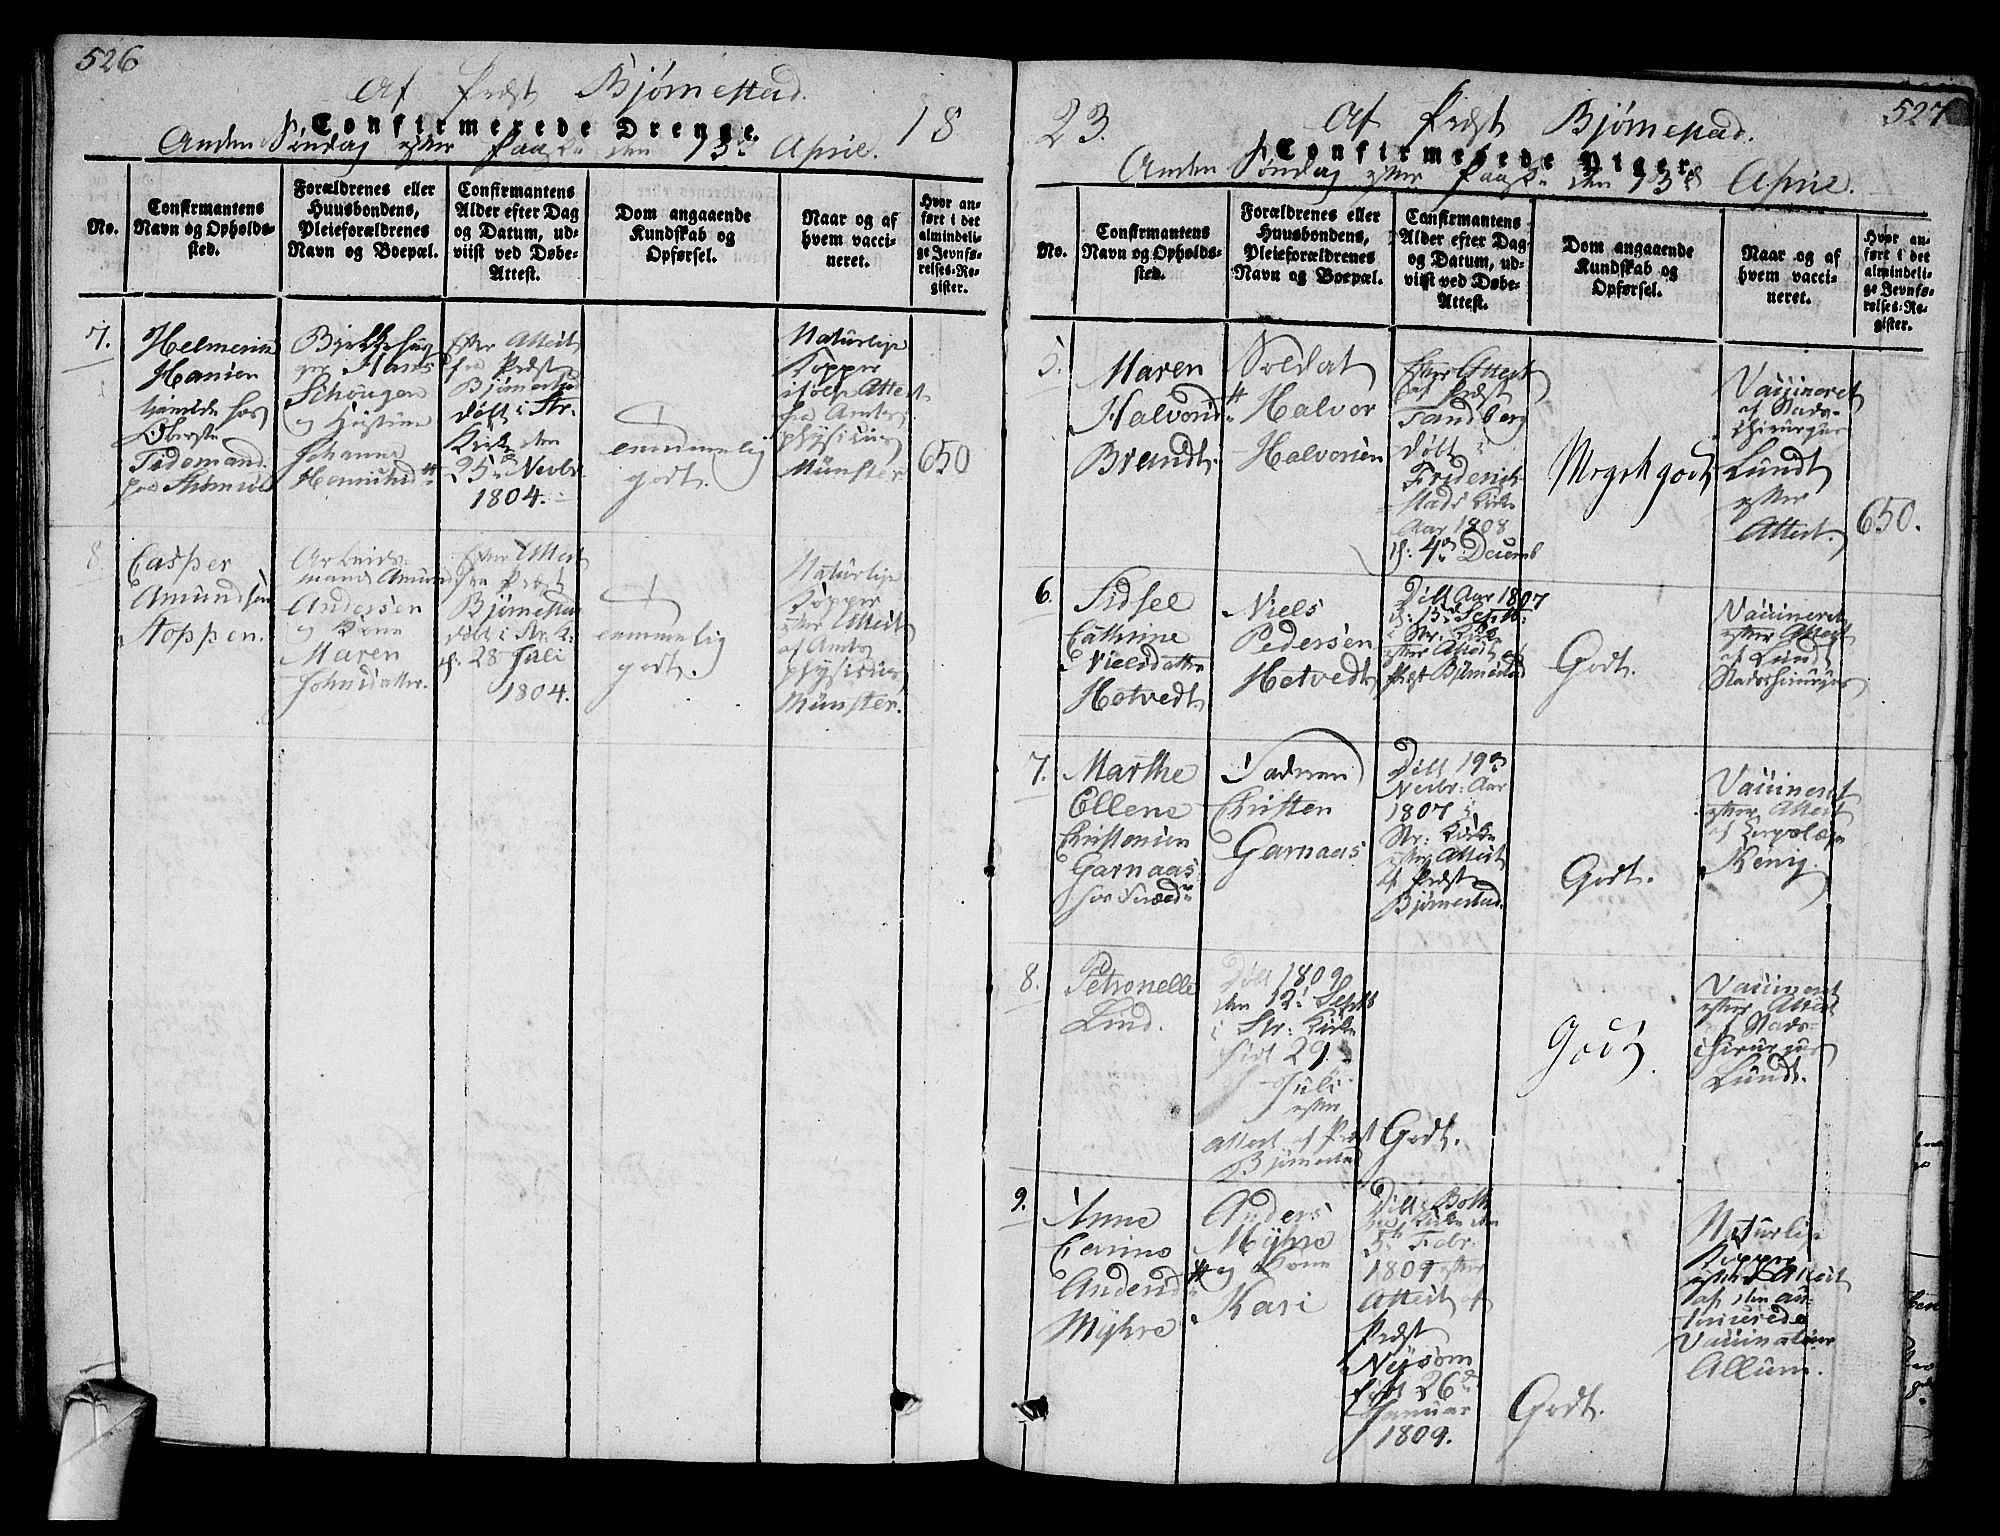 526
Af Præst Bjørnestad.
Confirmerede Drenge.
Anden Søndag efter Paaske den 13de April. 18
No.
Confirmantens
Navn og Opholds-
sted.
Forældrenes eller
Huusbondens,
Pleieforældrenes
Navn og Boepæl.
Confirmantens
Alder efter Dag
og Datum, ud-
viist ved Døbe-
Attest.
Dom angaaende
Kundskab og
Opførsel.
Naar og af
hvem vacci-
neret.
Hvor an-
ført i det
almindeli-
ge Jevnfø-
relses-Re-
gister.
7.
Hansen
hos
Oberste
Tidemand
paa
Hans
Schougen
og Hustrue
Johanne
Efter Attest
fra Præst
Bjørnestad
døbt i Str:
Kirke den
25de Novbr.
1804.
temmelig
godt.
Naturlige
Kopper
ifølge Attest
fra Amts
physicus
Münster
650
8.
Casper
Amundsen
Stoppen.
Arbeids-
mand Amund
Andersen
og Kone
Maren
Johnsdatter.
Efter Attest
fra Præst
Bjørnestad
døbt i Str. K.
d: 28 Juli
1804.
temmelig
godt.
Naturlige
Kopper
efter Attest
af Amts
physicus
Münster.
527
Af Præst Bjørnestad.
23.
Confirmerede Piger.
Anden Søndag efter Paaske den 13de April.
No.
Confirmantens
Navn og Opholds-
sted.
Forældrenes eller
Huusbondens,
Pleieforældrenes
Navn og Boepæl.
Confirmantens
Alder efter Dag
og Datum, ud-
viist ved Døbe-
Attest.
Dom angaaende
Kundskab og
Opførsel.
Naar og af
hvem vacci-
neret.
Hvor an-
ført i det
almindeli-
ge Jevnfø-
relses-Re-
gister.
5.
Maren
Halvorsd
Brandt.
Soldat
Halvor
Halvorsen
Efter Attest
af Præst
Tandberg
døbt i
Friderich-
stads Kirke
Aar 1808
d: 4de Decemb
Meget godt
Vaccineret
af Stads-
chirurgus
Lundt
efter
Attest.
650.
6.
Sidsel
Cathrine
Nielsdatter
Hotvedt
Niels
Pedersen
Hotvedt
Døbt Aar 1807
d: 13de Septb:
i Str: Kirke
efter Attest af
Præst Bjørnestad
Godt.
Vaccineret
efter Attest
af Lundt
Stadschirurgus
7.
Marthe
Ellene
Christensen
Garnaas
hos
Christen
Garnaas
Døbt 19de
Novbr: Aar
1807 i
Str: Kirke
efter Attest
af Præst
Bjørnestad.
Godt.
Vaccineret
efter Attest
af
Kenig.
8.
Petronelle
Lind.
Døbt 1809
den 12. Septb
i Str: Kirke
født 29
Juli
efter
Attest af Præst
Bjørnestad
Godt.
Godt
Vaccineret
efter Attest
af Stads-
chirurgus
Lundt.
9.
Anne
Andersd
Myhre
Anders
Myhre
og Kone
Kari
Døbt i
Kirke den
5te Febr.
1809 efter
Attest af
Præst
Nysom
født 26de
Januar
1809.
Godt.
Naturlige
Kopper
efter Attest
af den au-
toriserede
Vaccinateur
Allum.